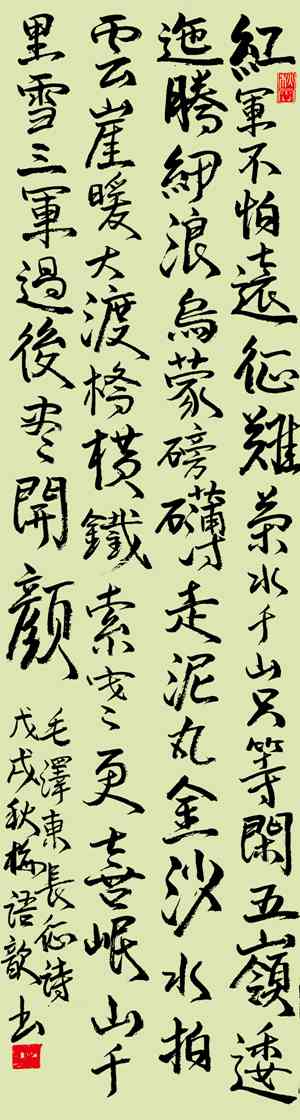 紅軍不怕遠征難萬水千山只等閑五嶺逶
迤騰細浪烏蒙磅礴走泥丸金沙水拍
雲崖暖大渡橋橫鐵索寒更喜岷山千
里雪三軍過後盡開顏
毛澤東長征詩
戊戌秋梅語歆书